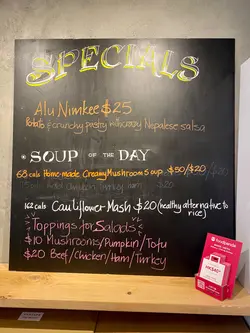 SPECIALS
Alu Nimkee $25
Potato & crunchy pastry with crazy Nepalese salsa
* SOUP OF THE DAY
68 cals Home-made Creamy Mushroom Soup $50/$20
$20
162 cals Cauliflower Mash $20 (healthy alternative to rice)
Toppings for Salads
$10 Mushrooms/Pumpkin/Tofu
$20 Beef/Chicken/Ham/Turkey
foodpanda